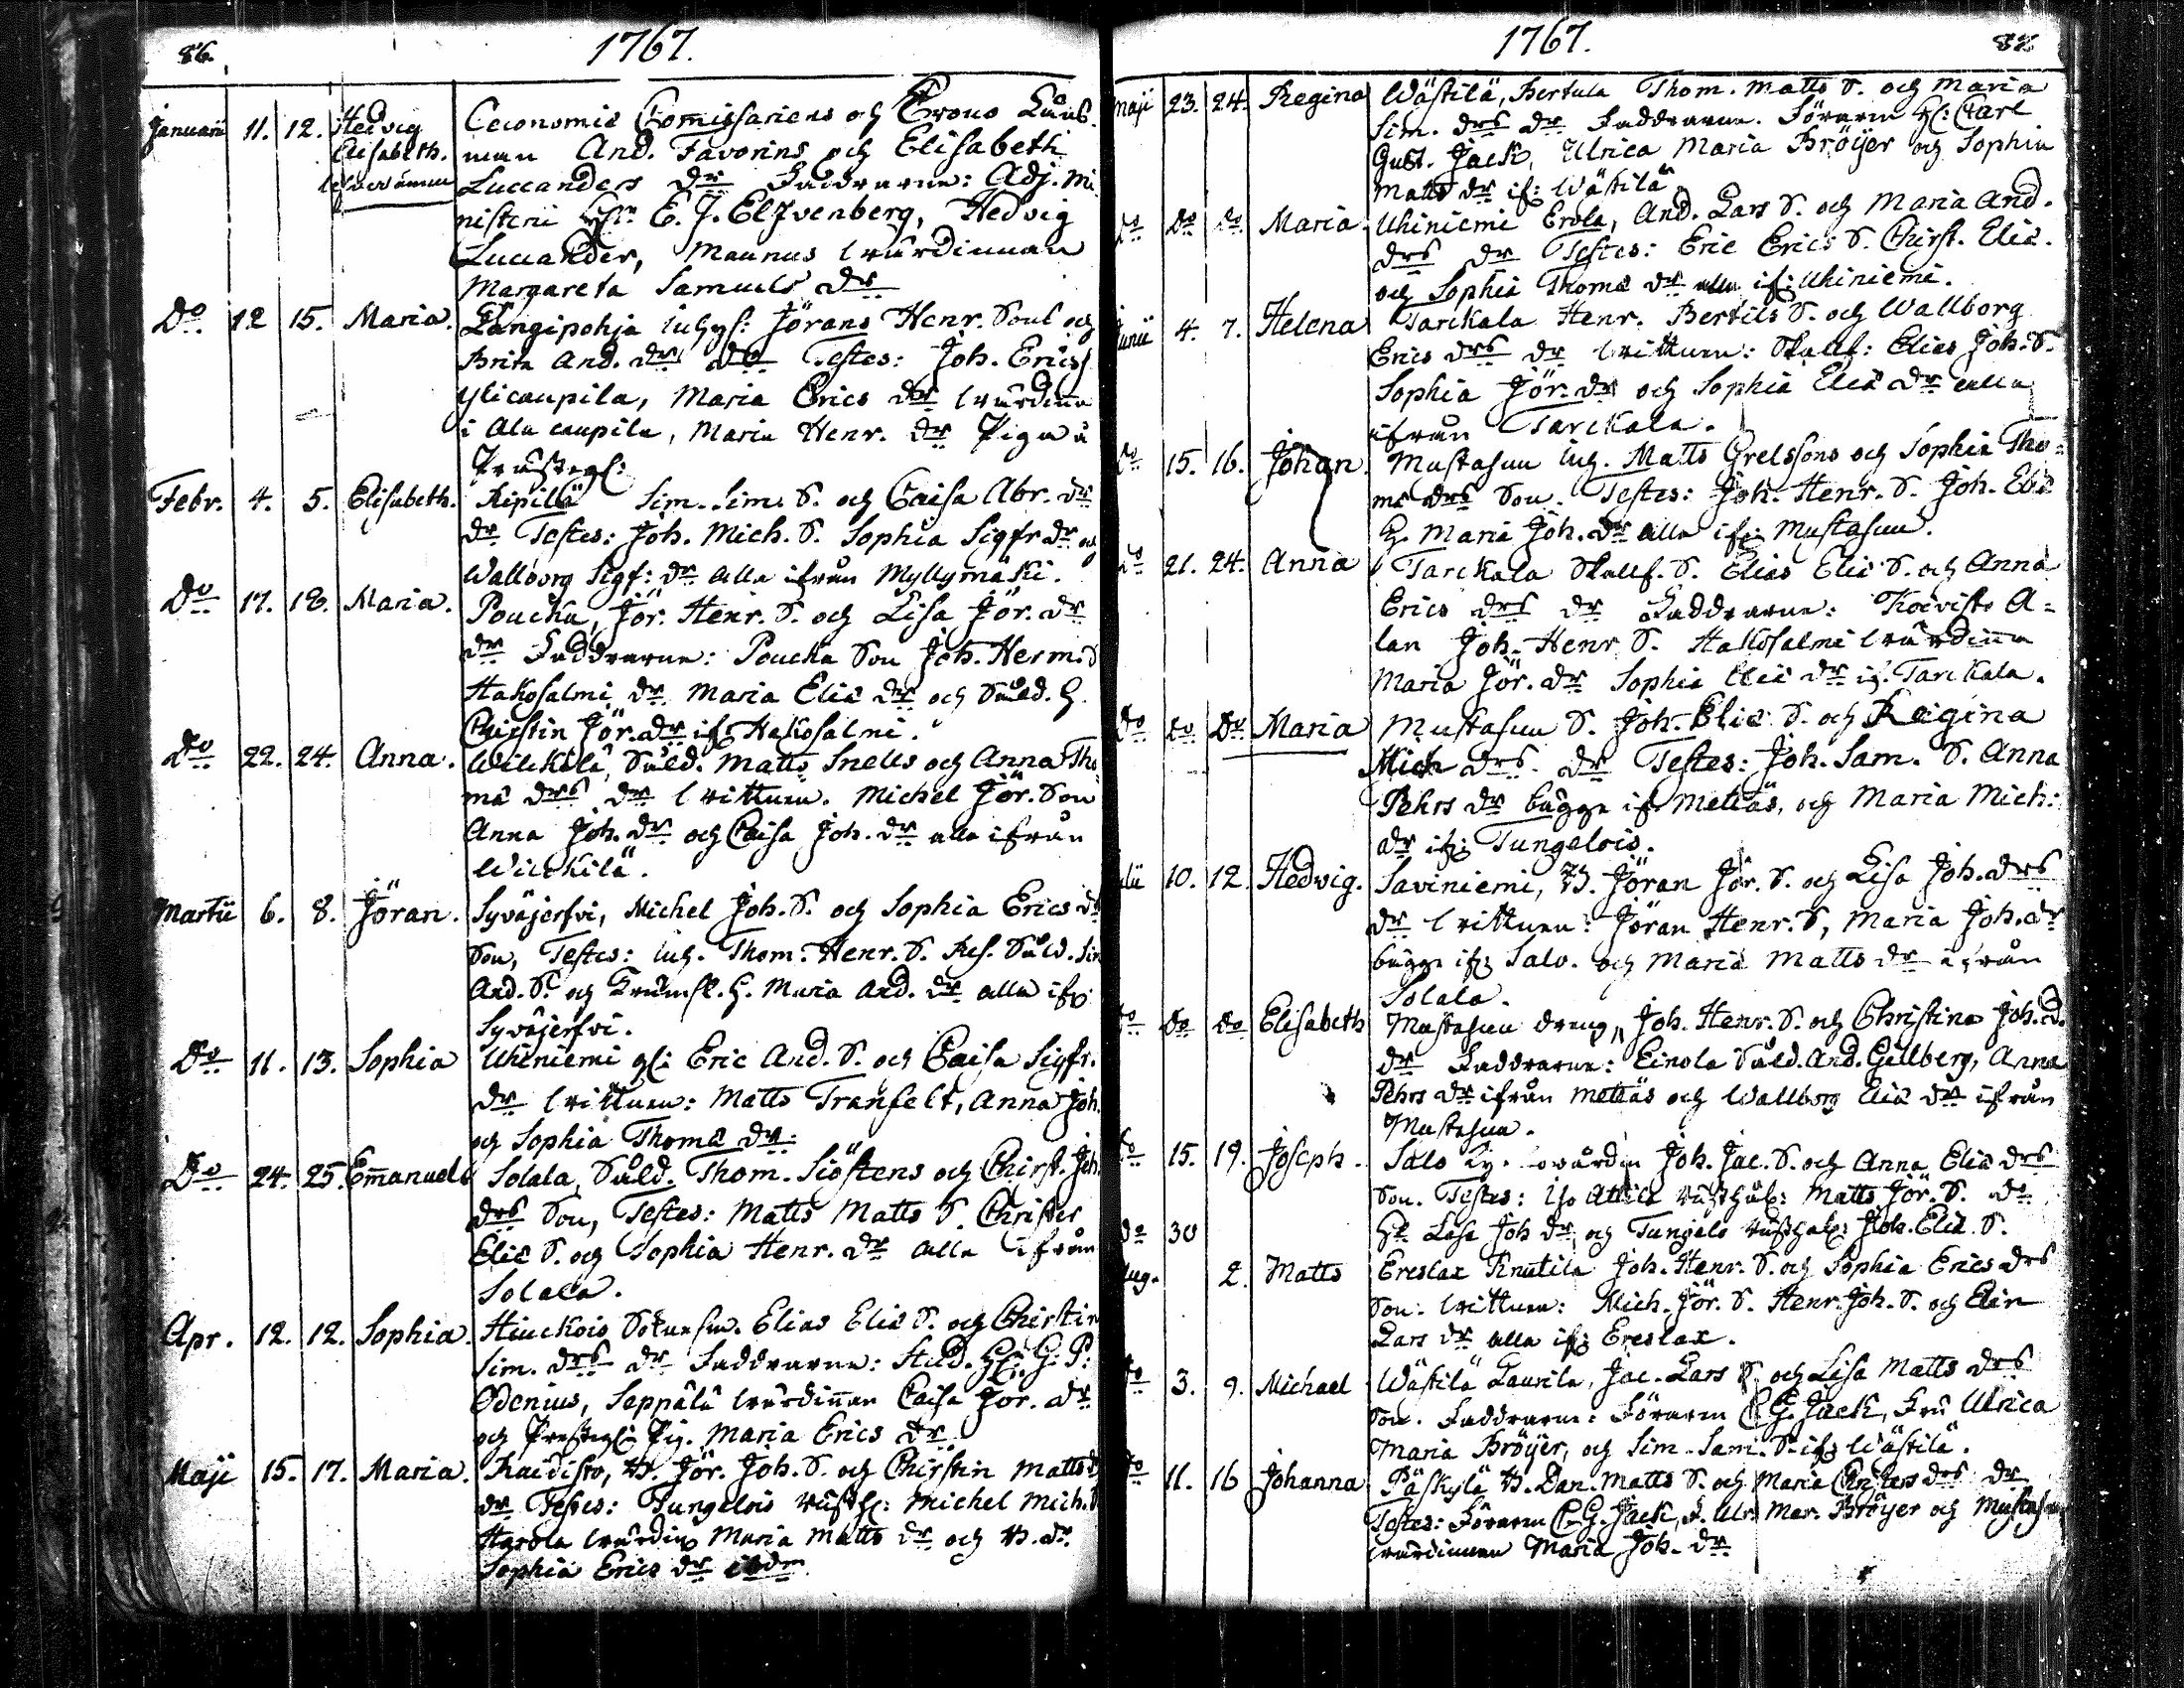 86.
1767.
Januarii 11. 12. Hedvig Oeconomie Commissariens och Crono Läns
Elisabeth. man And. Favorins och Elisabeth
Luccanders dr Faddrarne: Adj. Mi
nisterii Hr E. J. Elfvenberg, Hedvig
Luccander, Maunus wärdinnan
Margareta Samuels dr
Do 12 15. Maria. Längipohja Jörans Henr. Sons och
Brita And. dr dr Testes: Joh. Erics
Ylicaupila, Maria Erics dr wärdinna
i Ala caupila, Maria Henr. dr Piga i
Prästeg:
Febr. 4. 5. Elisabeth. Ripilä Sim. Sim. S. och Caisa Abr. dr
dr Testes: Joh. Mich. S. Sophia Sigfr dr och
Wallborg Sigf: dr alla ifrån Myllymäki.
Do 17. 18. Maria. Poucka, Jör. Henr. S. och Lisa Jör. dr
dr Faddrarne: Poucka Son Joh. Herm. S
Hakosalmi dr Maria Elis dr och Såld. H.
Chirstin Jör. dr if. Hakosalmi.
Do 22. 24. Anna. Wilckilä, Såld. Matts Snells och Anna Tho
mæ drs dr wittnen. Michel Jör. Son
Anna Joh. dr och Caisa Joh. dr alla ifrån
Wilckilä.
Martii 6. 8. Jöran. Syväjerfvi, Michel Joh. S. och Sophia Erics dr
Son, Testes: Thom. Henr. S. Res. Såld. Sim
And. S. och Maria And. dr alla if:
Syväjerfvi.
Do 11. 13. Sophia Uhiniemi Eric And. S. och Caisa Sigfr.
dr wittnen: Matts Tranfelt, Anna Joh.
och Sophia Thomæ dr.
Do 24. 25. Emanuel Solala, Såld. Thom. Siöstens och Chirst. Joh.
drs Son, Testes: Matts Matts S. Christer
Elis S. och Sophia Henr. dr alla ifrån
Solala.
Apr. 12. 12. Sophia. Hiuckois Elias Elis S. och Chirstin
Sim. drs dr Faddrarne: Stud. H: G. P:
Odenius, Seppälä wärdinnan Caisa Jör. dr
och Prästeg: Pig. Maria Erics dr
Maji 15. 17. Maria. Raidisto, Jör. Joh. S. och Chirstin Matts d
dr Testes: Tungelois Michel Mich. S
Harola wärdin Maria Matts dr och dr
Sophia Erics dr
1767.
Maji 23. 24. Regina Wästilä, Bertula Thom. Matts S. och Maria
Sim. drs dr Faddrarne. Föraren H: Carl
Gust. Jack, Ulrica Maria Bröijer och Sophia
Matts dr if: Wästilä
Do Do Do Maria. Uhiniemi Erola, And. Lars S. och Maria And.
drs dr Testes: Eric Erics S. Chirst. Elis.
och Sophia Thomæ dr alla if: Uhiniemi.
Junii 4. 7. Helena Tarckala Henr. Bertils S. och Wallborg
Erics drs dr wittnen: Skallf: Elias Joh. S.
Sophia Jör. dr och Sophia Elis dr alla
ifrån Tarckala.
Do 15. 16. Johan. Mustasuu Matts Grelssons och Sophia Tho=
mæ drs Son. Testes: Joh. Henr. S. Joh. Elis
H. Maria Joh. dr alla if: Mustasuu.
Do 21. 24. Anna Tarckala Skallf. S. Elias Elis S. och Anna
Erics drs dr Faddrarne: Koivisto A=
lan Joh. Henr S. Hakosalmi wärdinna
Maria Jör. dr Sophia Elis dr if. Tarckala.
Do Do Do Maria Mustasuu S. Joh. Elis S. och Regina
Mich drs. dr Testes: Joh. Sam. S. Anna
Pehrs dr bägge if Metiäs, och Maria Mich:
dr if: Tungelois.
10. 12. Hedvig. Saviniemi, Jöran Jör. S. och Lisa Joh. drs
dr wittnen: Jöran Henr. S, Maria Joh. dr
bägge if: Salo. och Maria Matts dr ifrån
Solala.
Do Do Do Elisabeth Mustasuu dreng, Joh. Henr. S. och Christina Joh. d.
dr Faddrarne: Einola Såld. And. Gillberg, Anna
Pehrs dr ifrån Mettäs och Wallborg Elis dr ifrån
Mustasuu.
Do 15. 19. Joseph. Salo Joh. Jac. S. och Anna Elis drs
Son. Testes: Attila Matts Jör. S. do
Lisa Joh dr och Tungelo Joh. Elis. S.
Do 30
Aug. 2. Matts Ereslax Knutila Joh. Henr. S. och Sophia Erics drs
Son. wittnen: Mich. Jör. S. Henr. Joh. S. och Elin
Lars dr alla if: Ereslax.
Do 3. 9. Michael Wästilä Laurila, Jac. Lars S. och Lisa Matts drs
Son. Faddrarne: Föraren C. G. Jack, Fru Ulrica
Maria Bröijer, och Sim. Sam. S. if: Wästilä.
Do 11. 16 Johanna Päskylä Dan. Matts S. och Maria Christers drs dr
Testes: Föraren C. G. Jack, F. Ulr. Mar. Bröijer och Mustasuu
wärdinnan Maria Joh. dr